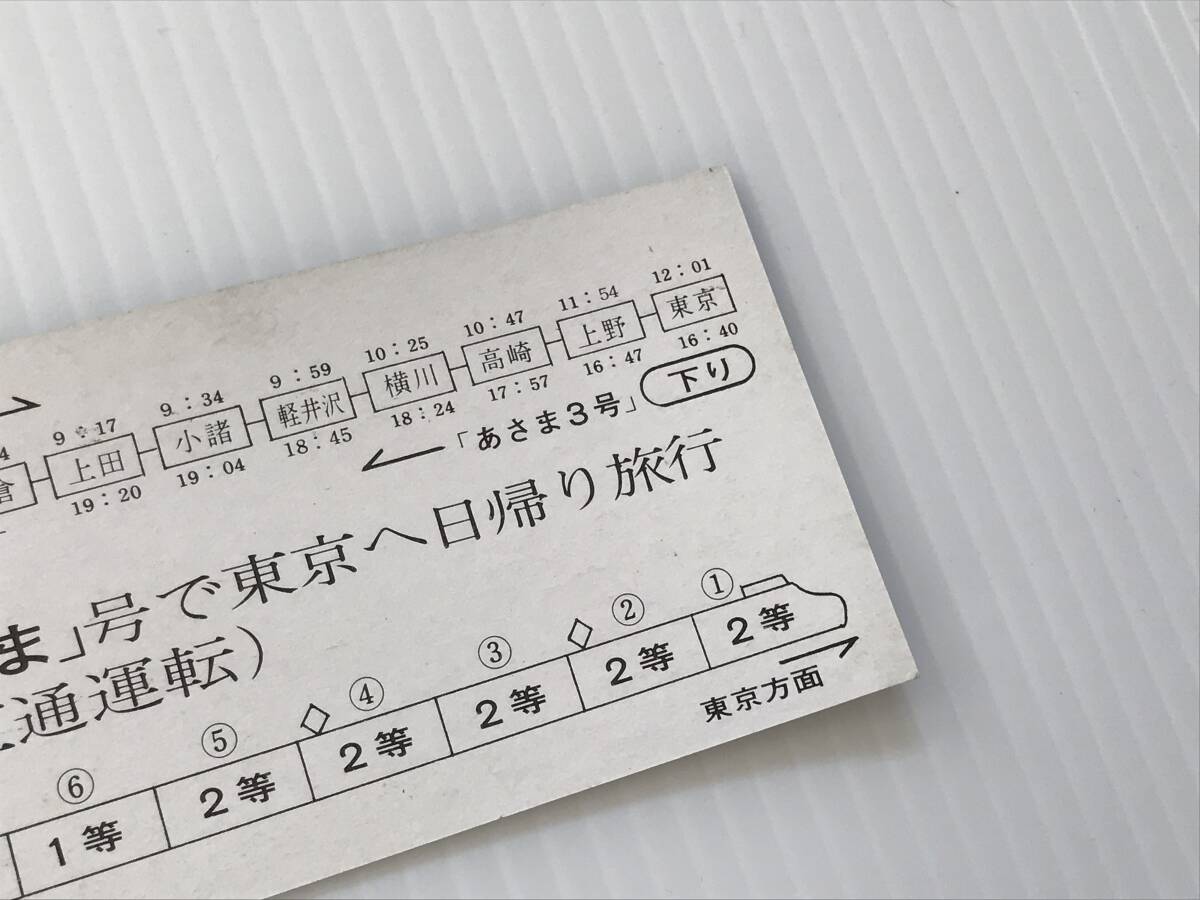 9:17 9:34 9:59 10:25 10:47 11:54 12:01
倉 上田 小諸 軽井沢 横川 高崎 上野 東京
19:20 19:04 18:45 18:24 17:57 16:47 16:40
「あさま3号」 下り
ま」号で東京へ日帰り旅行
通運転)
⑥ ⑤ ④ ③ ② ①
1等 2等 2等 2等 2等 2等
東京方面